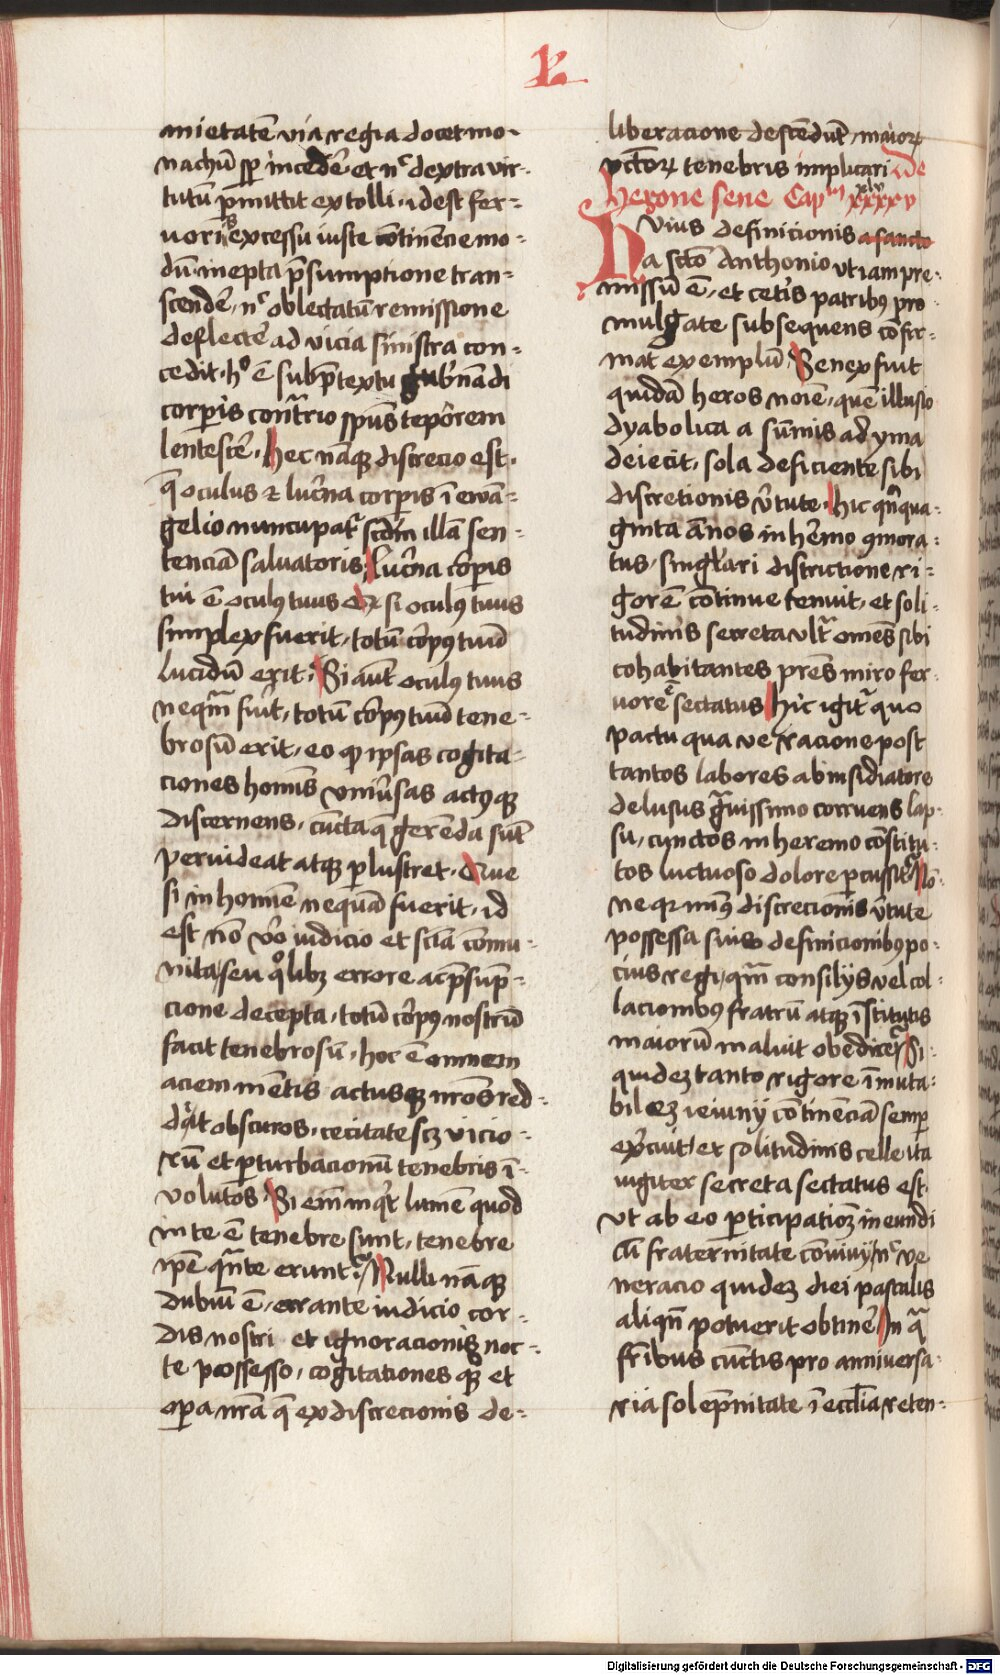 L
mietatē via regia docet mo-
nachū sꝑ incedē et nͨ dextra vir-
tutū ꝑmittit extolli · idest fer-
uoris excessu iuste cōtinēcie mo-
dū inepta p̄sumptione tran-
scendē, nͨ oblectatū remissione
deflectē ad vicia sinistra con-
cedit · hͦ ē sub p̄textu gub̄nādi
corꝑis contrͣio sp̄us teporem
lentescē · Hec nāqꝫ discrecio est ·
q̄ oculus ⁊ luc̄na corꝑis ī ewā-
gelio nuncupatᷣ scd̄m illā sen-
tenciā saluatoris, Luc̄na corꝑis
tui ē oculꝰ tuus Et si oculꝰ tuus
simplex fuerit, totū corpꝰ tuū
lucidū erit · Si aut̄ oculꝰ tuus
neqͣm fūit, totū corpꝰ tuū tene-
brosū erit, eo ꝙ ipsas cogita-
ciones homīs vniūsas actꝰqꝫ
discernens, cūcta q̄ gerēda sūt
peruideat atqꝫ ꝑlustret · Que
si in homīe nequā fuerit, id
est nō v̄o iudicio et sciā cōmu-
nita, seu qͦlibꝫ errore ac p̄sūp-
cione decepta, totū corpꝰ nostrū
facit tenebrosū, hoc ē omnem
aciem mētis actusqꝫ nr̄os red-
dāt obscuros, cecitate scꝫ vicio-
rū et ꝑturbacionū tenebris ī-
volutos · Si em̄ inqͥt lumē quod
in te ē tenebre sunt, tenebre
ip̄e qͣnte erunt · Nulli nāqꝫ
dubiū ē, errante iudicio cor-
dis nostri et ignoracionis noc-
te possesso, cogitationes qͦꝫ et
oꝑa nr̄a q̄ ex discrecionis de-
liberacione descēdūt, maiorꝫ
pctōrꝫ tenebris implicari De
Herone sene Capᵐ xlv xxxxv
Huius definicionis a sancto
a sctō Anthonio vt iam pre-
missū ē, et cetīs patribꝰ pro
mulgate subsequens cōfir-
mat exemplū, Senex fuit
quidā heros noīe, quē illusio
dyabolica a sūmis ad yma
deiecit, sola deficiente sibi
discretionis v̄tute · Hic qͥnqua-
ginta annos in hēmo ꝯmora-
tus, singlari districtione ri-
gorē cōtinue tenuit, et soli-
tudinis secreta vltͣ omēs sibi
cohabitantes pr̄es miro fer-
uorē sectatus Hic igitᷣ quo
pactu qua ve racione post
tantos labores ab insidiatore
delusus gͣuissimo corruens lap-
su, cunctos in heremo cōstitu-
tos luctuoso dolore ꝑcussit Nō
ne qꝛ minꝰ discrecionis v̄tute
possessa suis definicionibꝰ po-
cius regi, qͣm consilijs vel col-
lacionibus fratrū atqꝫ īstitutis
maiorū maluit obedire Si-
quideꝫ tanto rigore īmuta-
bilem ieiunij cōtinenciā semꝑ
exc̄uit et solitudinis celle ita
iugiter secreta sectatus est,
vt ab eo ꝑticipatioꝫ ineundi
cū fraternitate cōuiuij nͨ ve
neracio quideꝫ diei pascalis
aliqn̄ potuerit obtinē In qͣ
fr̄ibus cūctis pro anniuersa-
ria solēpnitate ī eccl̄ia reten-
Digitalisierung gefördert durch die Deutsche Forschungsgemeinschaft - DFG